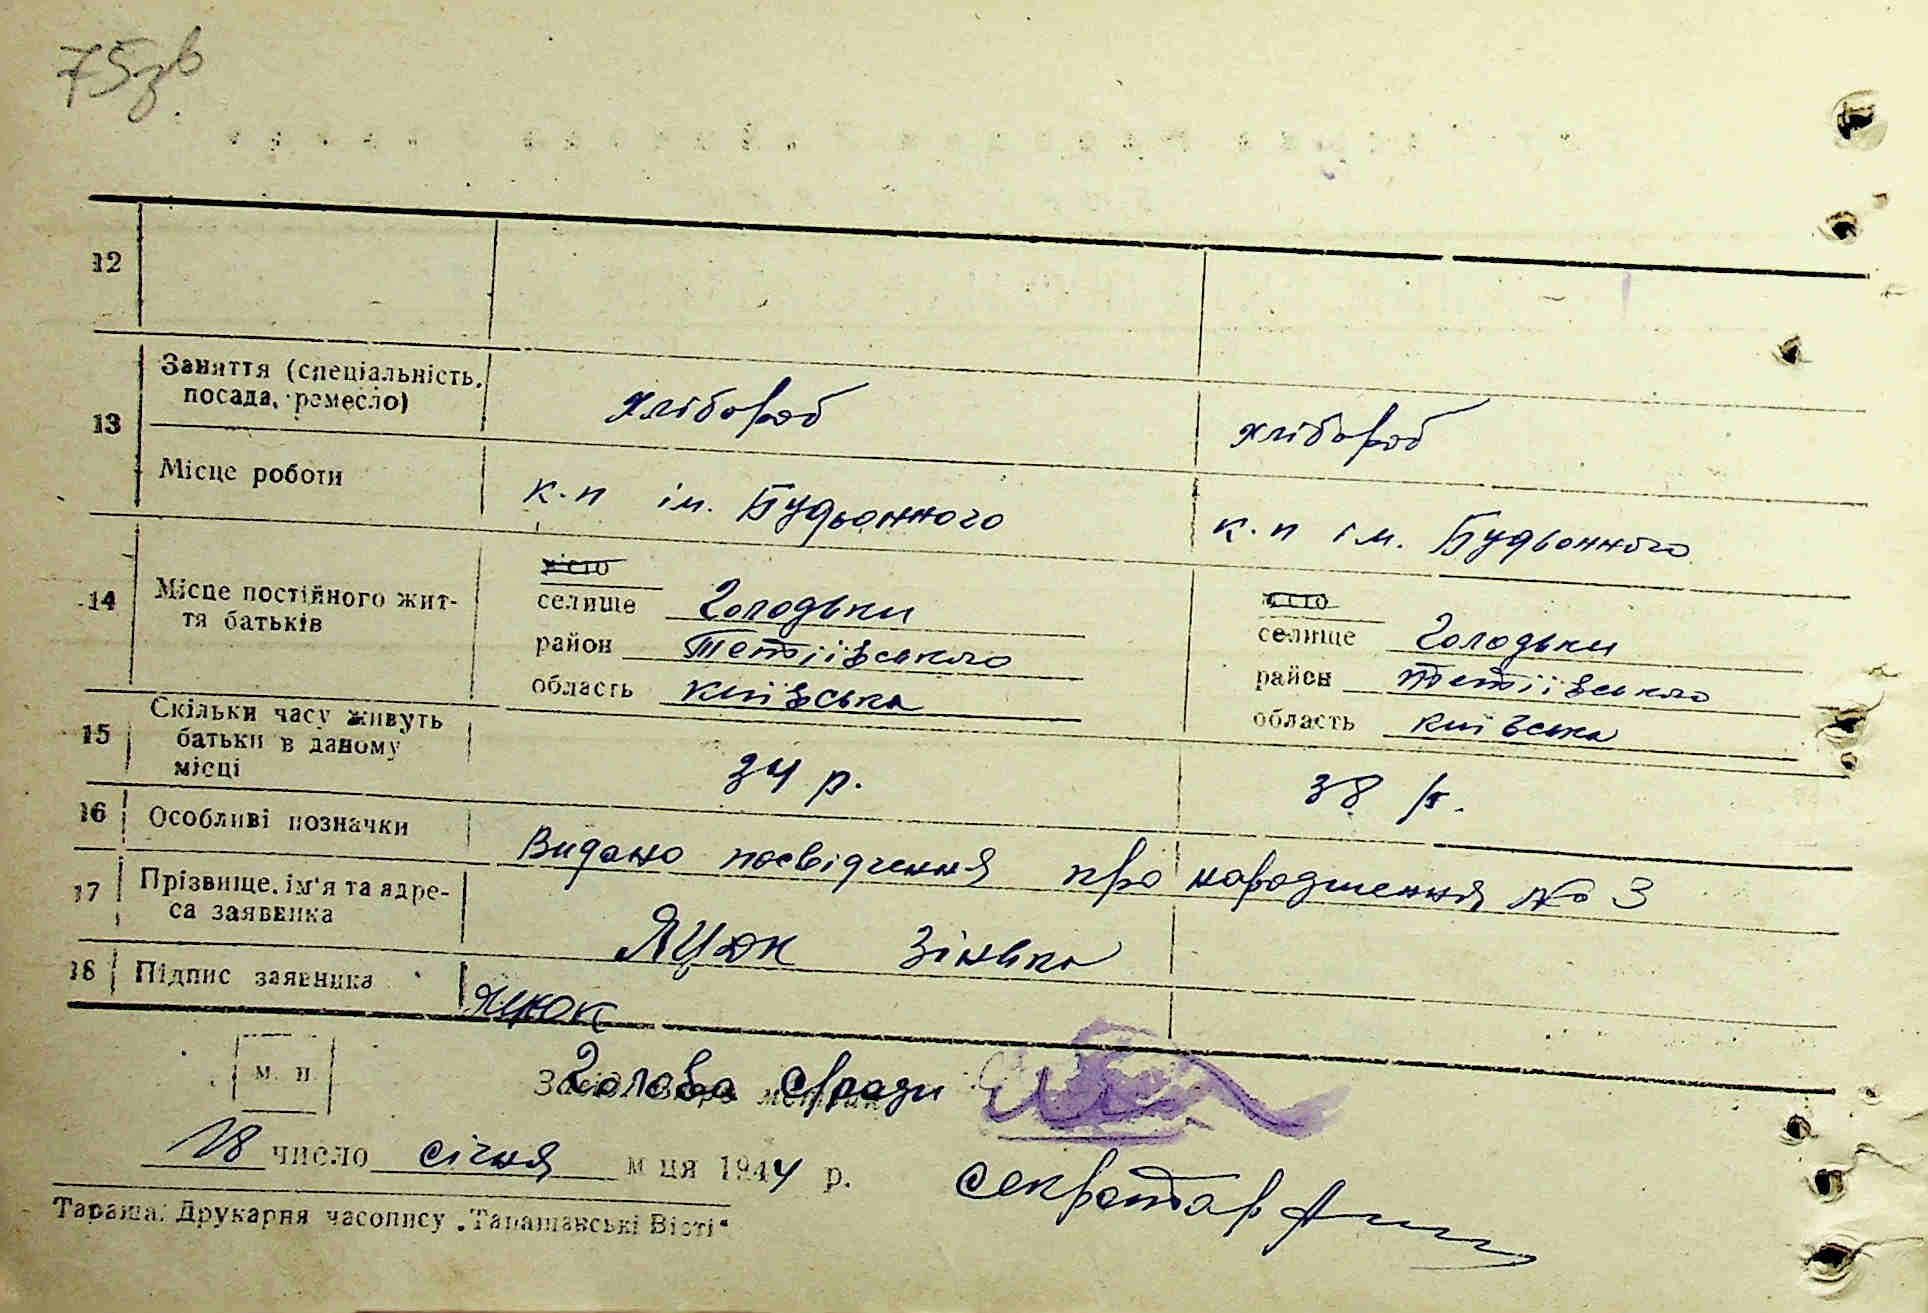 75зв
12
13 Заняття (спеціальність, посада, ремесло) хлібороб хлібороб
Місце роботи к.п ім. Будьонного к.п ім. Будьонного
14 Місце постійного життя батьків
місто місто
селище Голодьки селище Голодьки
район Тетіївського район Тетіївського
область київська область київська
15 Скільки часу живуть батьки в даному місці 34 р. 38 р.
16 Особливі позначки Видано посвідчення про народження № 3
17 Прізвище, ім'я та адреса заявника Яцюк Зінька
18 Підпис заявника Яцюк
м. п. Голова с/ради
18 число січня м-ця 1944 р. секретар
Тараща. Друкарня часопису „Таращанські Вісті“